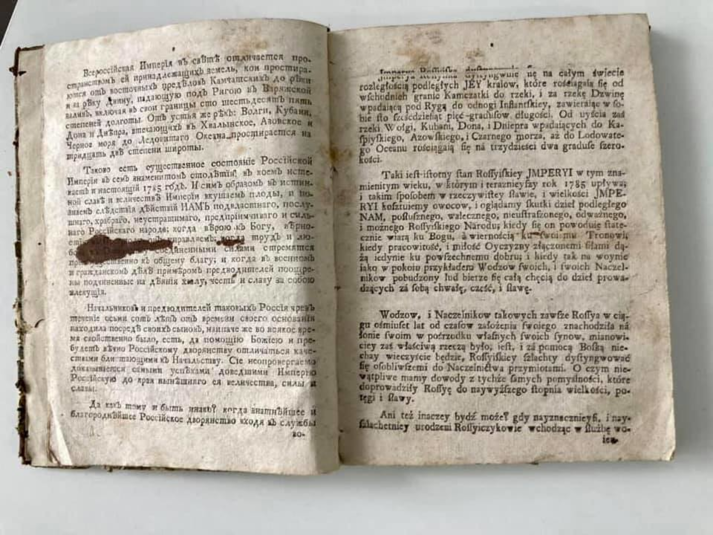 Всероссїйская Имперїя въ свѣтѣ отличается про-
странствомъ ей принадлежащихъ земель, кои простира-
ются отъ восточныхъ предѣловъ Камчатскихъ до рѣки
и за рѣку Двину, падающую подъ Ригою въ Варяжской
заливъ, включая въ свои границы сто шестьдесятъ пять
степеней долготы. Отъ устья же рѣкъ: Волги, Кубани,
Дона и Днѣпра, втекающихъ въ Хвалынское, Азовское и
Черное моря до Ледовитаго Океана простирается на
тридцать двѣ степени широты.
Таково есть существенное состоянїе Россїйской
Имперїи въ семъ знаменитомъ столѣтїи въ коемъ исте-
каетъ и настоящїй 1785 годъ. И симъ образомъ въ истин-
ной славѣ и величествѣ Имперїи вкушаемъ плоды, и по-
знаемъ слѣдствїя дѣйствїй НАМЪ подвластнаго, послу-
шнаго, храбраго, неустрашимаго, предпрїимчиваго и силь-
наго Россїйскаго народа; когда вѣрою къ Богу, вѣрно-
управляемъ, когда трудъ и лю-
соединенными силами стремятся
къ общему благу; и когда въ военномъ
и гражданскомъ дѣлѣ примѣромъ предводителей поощре-
ны подчиненные на дѣянїя хвалу, честь и славу за собою
влекущїя.
Начальниковъ и предводителей таковыхъ Россїя чрезъ
теченїе осьми сотъ лѣтъ отъ времени своего основанїя
находила посредѣ своихъ сыновъ, наипаче же во всякое вре-
мя свойственно было, есть, да помощїю Божїею и пре-
будетъ вѣчно Россїйскому дворянству отличаться каче-
ствами блистающими къ Начальству. Сїе неопровергаемо
доказывается самыми успѣхами доведшими Имперїю
Россїйскую до края нынѣшняго ея величества, силы и
славы.
Да какъ тому и быть инако? когда знатнѣйшее и
благороднѣйшее Россїйское дворянство входя въ службы
Imperya Rossyiska dystyngwuie się na całym świecie
rozległością podległych JEY kraiow, które rościągaią się od
wschodnich granic Kamczatki do rzeki, i za rzekę Dzwinę
wpadaiącą pod Rygą do odnogi Inflantskiey, zawieraiąc w so-
bie sto sześćdziesiąt pięć gradusow długości. Od uyścia zaś
rzeki Wołgi, Kubani, Dona, i Dniepra wpadaiących do Ka-
spiyskiego, Azowskiego, i Czarnego morza, aż do Lodowate-
go Oceanu rościągaią się na trzydzieści dwa graduse szero-
kości.
Taki iest istotny stan Rossyiskiey JMPERYI w tym zna-
mienitym wieku, w którym i teraznieyszy rok 1785 upływa;
i takim sposobem w rzeczywistey sławie, i wielkości JMPE-
RYI kosztuiemy owocow, i oglądamy skutki dzieł podległego
NAM, posłusznego, walecznego, nieustraszonego, odważnego,
i możnego Rossyiskiego Narodu; kiedy się on powoduie state-
cznie wiarą ku Bogu, a wiernością ku swoiemu Tronowi;
kiedy pracowitość, i miłość Oyczyzny złączonemi siłami dą-
żą iedynie ku powszechnemu dobru; i kiedy tak na woynie
iako w pokoiu przykładem Wodzow swoich, i swoich Naczel-
nikow pobudzony lud bierze się całą chęcią do dzieł prowa-
dzących za sobą chwałę, cześć, i sławę.
Wodzow, i Naczelnikow takowych zawsze Rossya w cią-
gu ośmiuset lat od czasow założenia swoiego znachodziła na
łonie swoim w pośrzodku własnych swoich synow, mianowi-
cicy zaś właściwą rzeczą było, iest, i za pomocą Boską nie-
chay wieczyście będzie, Rossyiskiey szlachty dystyngwować
się osobliwszemi do Naczelnictwa przymiotami. O czym nie-
wątpliwe mamy dowody z tychże samych pomyślności, które
doprowadziły Rossyę do naywyższego stopnia wielkości, po-
tęgi i sławy.
Ani też inaczey bydź może? gdy nayznacznieysi, i nay-
szlachetnieysi urodzeni Rossyiczykowie wchodząc w służbę wo-